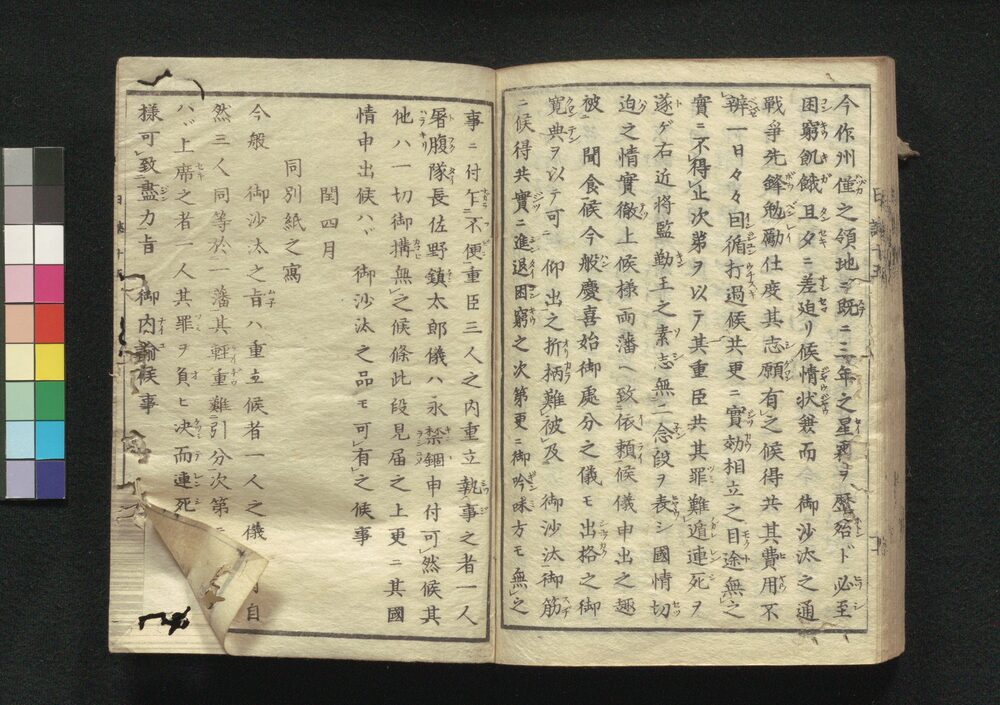 今作州僅之領地ニ既ニ三年之星霜ヲ歴殆ド必至
困窮飢餓且夕ニ差迫リ候情状兼而 御沙汰之通
戰爭先鋒勉勵仕度其志願有之候得共其費用不
辨一日々々因循打過候共更ニ實効相立之目途無之
實ニ不得止次第ヲ以テ其重臣共其罪難遁連死ヲ
遂ゲ右近将監勤王之素志無二念段ヲ表シ國情切
迫之情實徹上候様両藩ヘ致依頼候儀申出之趣
被 聞食候今般慶喜始御處分之儀モ出格之御
寛典ヲ以テ可 仰出之折柄難被及 御沙汰御筋
ニ候得共實ニ進退困窮之次第更ニ御吟味方モ無之
事ニ付乍不便重臣三人之内重立執事之者一人
屠腹隊長佐野鎮太郎儀ハ永禁錮申付可然候其
他ハ一切御搆無之候條此段見届之上更ニ其國
情申出候ハヾ 御沙汰之品モ可有之候事
閏四月
同別紙之寫
今般 御沙汰之旨ハ重立候者一人之儀
自
然三人同等於一藩其軽重難引分次第
ハヾ上席之者一人其罪ヲ負ヒ决而連死
様可致盡力旨 御内諭候事